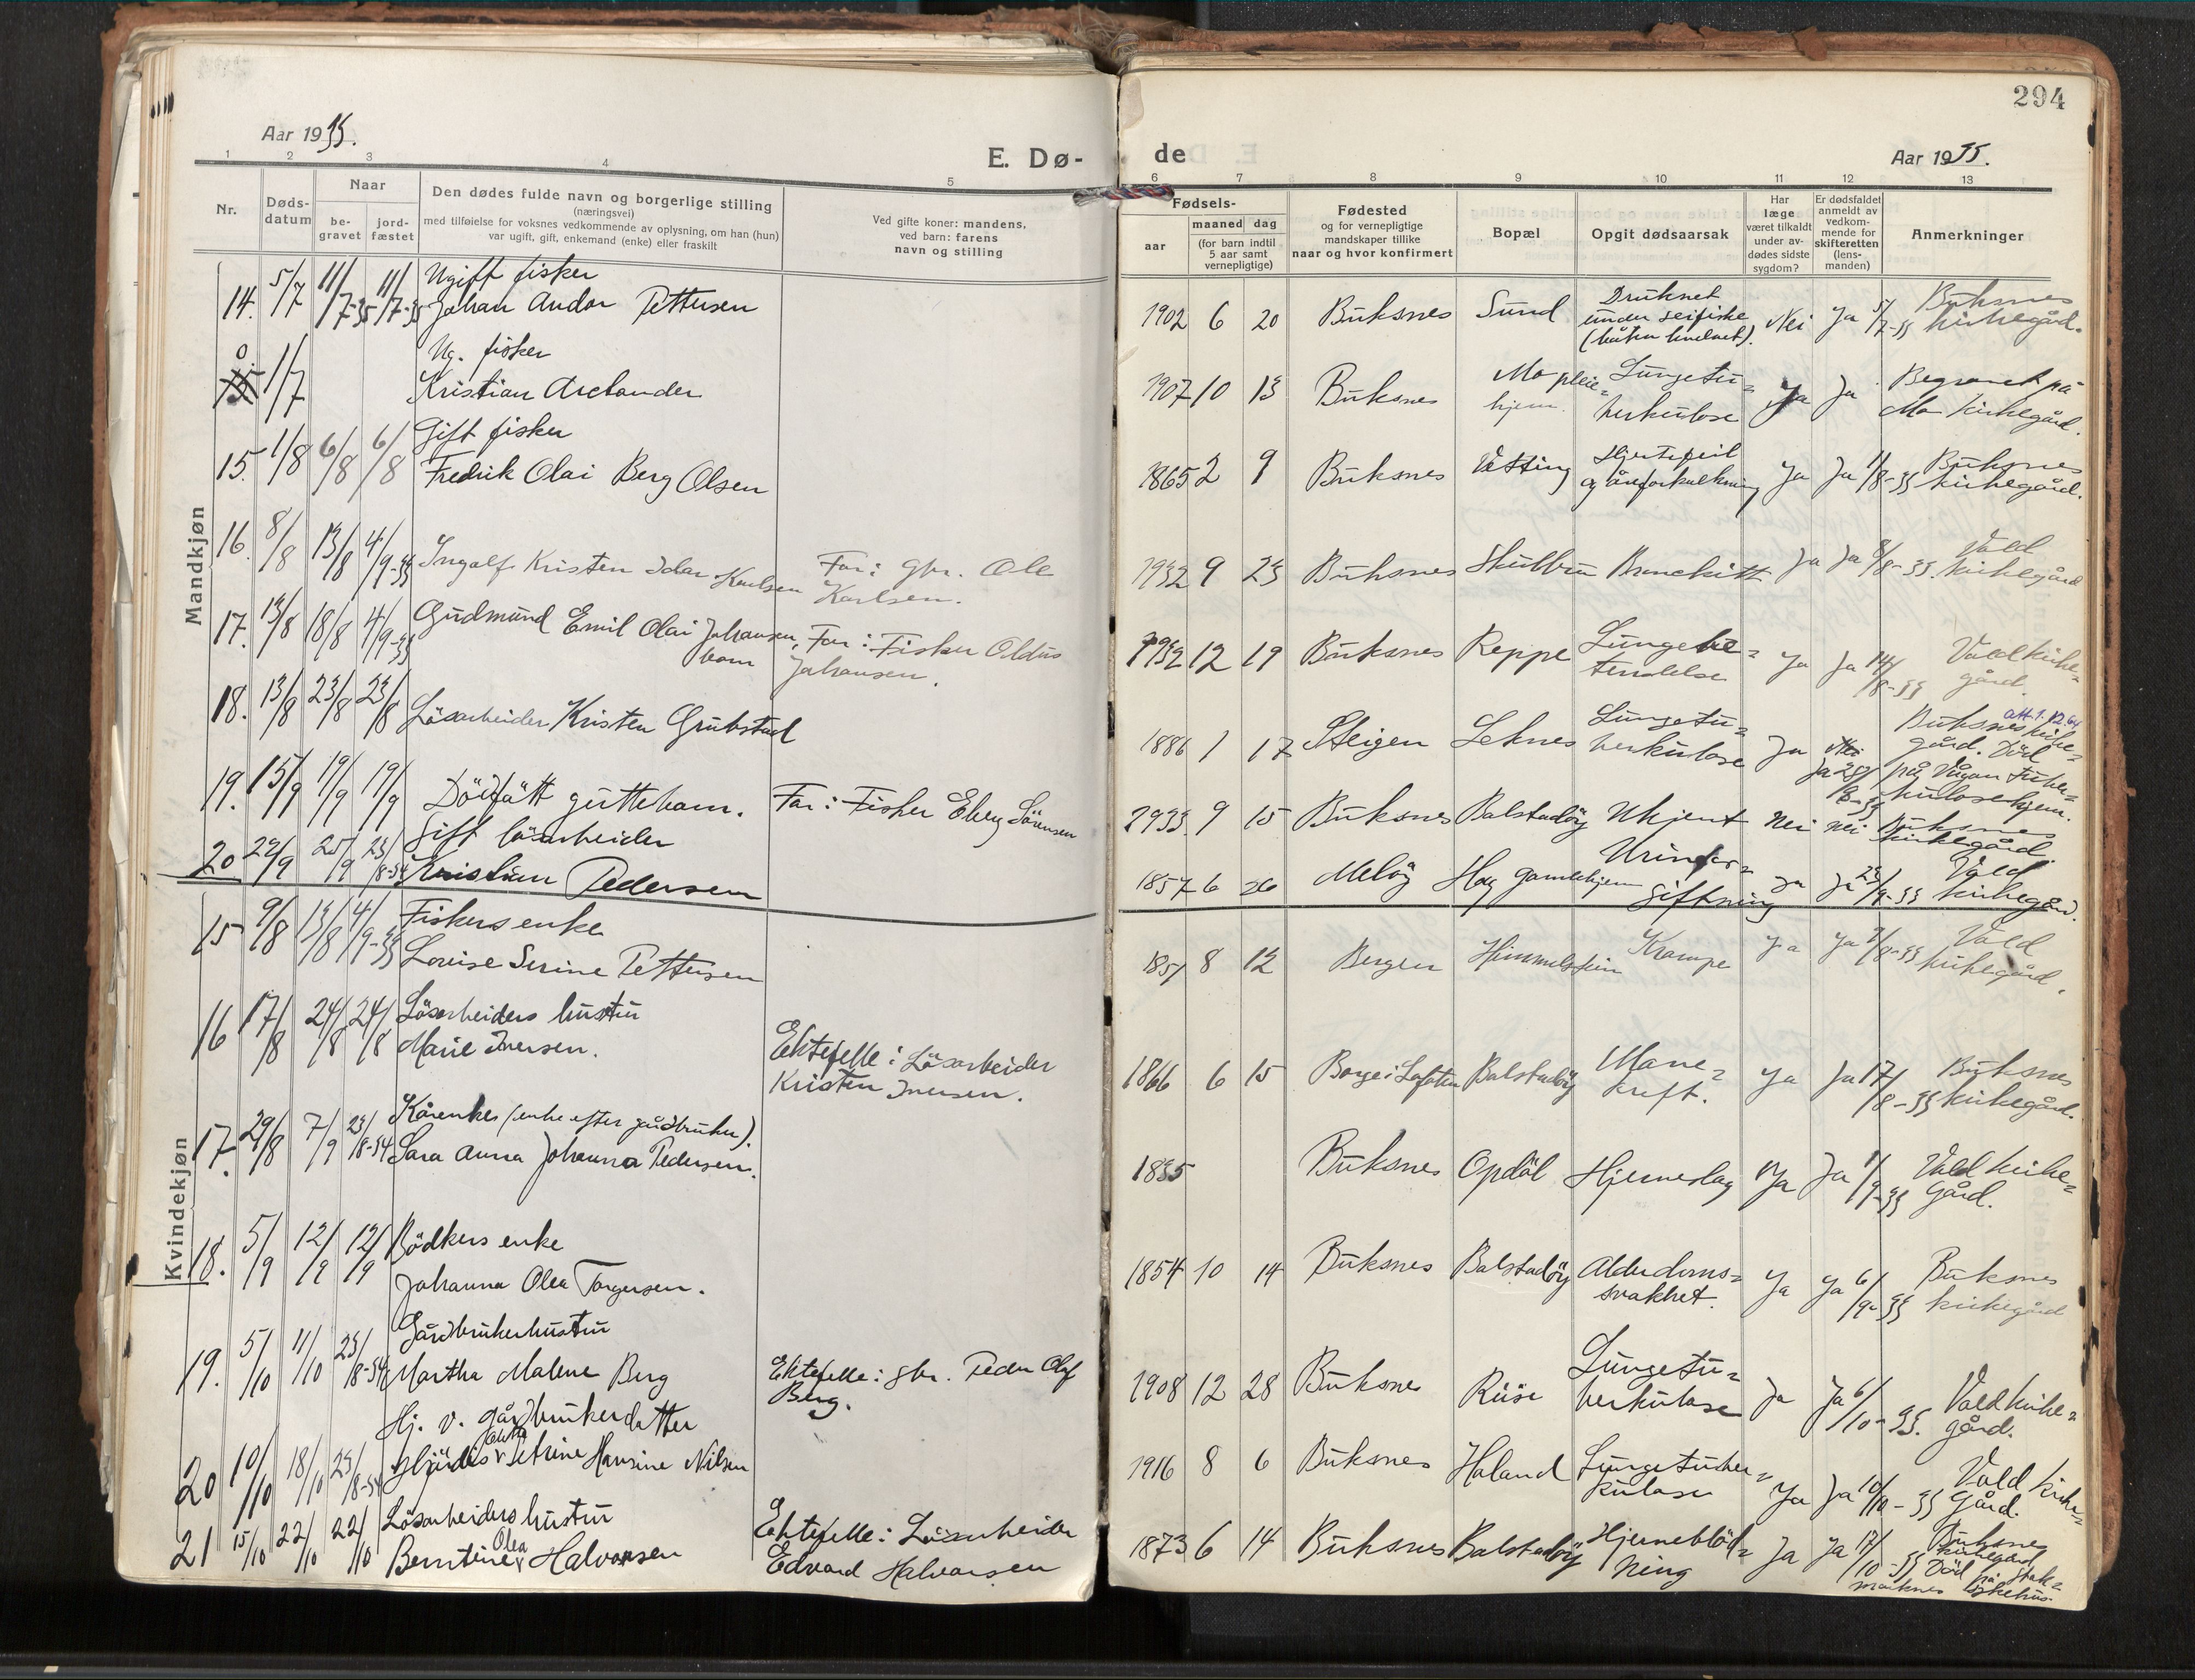 294
Aar 1933.
E. Dø-
de
Aar 1933.
1 2 3 4 5
6 7 8 9 10 11 12 13
Nr.
Døds-
datum
Naar
be-
gravet
jord-
fæstet
Den dødes fulde navn og borgerlige stilling
(næringsvei)
med tilføielse for voksnes vedkommende av oplysning, om han (hun)
var ugift, gift, enkemand (enke) eller fraskilt
Ved gifte koner: mandens,
ved barn: farens
navn og stilling
Fødsels-
aar
maaned dag
(for barn indtil
5 aar samt
vernepligtige)
Fødested
og for vernepligtige
mandskaper tillike
naar og hvor konfirmert
Bopæl
Opgit dødsaarsak
Har
læge
været tilkaldt
under av-
dødes sidste
sygdom?
Er dødsfaldet
anmeldt av
vedkom-
mende for
skifteretten
(lens-
manden)
Anmerkninger
Mandkjøn
14. 5/7 11/7-33 11/7-33 Ugift fisker
Johan Andor Pettersen
1902 6 20 Buksnes Sund Druknet
under seifiske
(båten hvelvet). Nei Ja 5/7-33 Buksnes
kirkegård.
0. 15 1/7 Ug. fisker
Kristian Arctander
1907 10 13 Buksnes Mo pleie=
hjem. Lungetu=
berkulose Ja Ja Begravet på
Mo kirkegård.
15. 1/8 6/8 6/8 Gift fisker
Fredrik Olai Berg Olsen
1865 2 9 Buksnes Vetting Hjertefeil
og åreforkalkning Ja Ja 1/8-33 Buksnes
kirkegård.
16. 8/8 13/8 4/9-33 Ingolf Kristen Idar Karlsen
Far: Gbr. Ole
Karlsen.
1932 9 23 Buksnes Skulbru Bronckitt Ja Ja 8/8-33. Vold
kirkegård
17. 13/8 18/8 4/9-33 Gudmund Emil Olai Johansen,
barn
Far: Fisker Oldus
Johansen.
1932 12 19 Buksnes Reppe Lungebe=
tendelse Ja Ja 14/8-33 Vold kirke=
gård.
18. 13/8 23/8 23/8 Løsarbeider Kristen Grubstad
1886 1 17 Steigen Leknes Lungetu=
berkulose Ja Nei
Ja Buksnes kirke=
gård. Död
på Vågan tuber=
kulosehjem.
19. 15/9 19/9 19/9 Dödfött guttebarn.
Far: Fisker Eberg Sörensen
1933. 9 15 Buksnes Balstadöy Ukjent Nei Nei Buksnes
kirkegård.
20 22/9 25/9 23/8-34 Gift løsarbeider
Kristian Pedersen
1857 6 26 Melöy Hag gamlehjem Urinfor=
giftning Ja Ja 23/9-33 Vold
kirkegård.
Kvindekjøn
15 9/8 13/8 4/9-33 Fiskers enke
Lovise Serine Pettersen
1851 8 12 Bergen Himmelstein Krampe Ja Ja 9/8-33 Vold
kirkegård.
16 17/8 24/8 24/8 Løsarbeiders hustru
Marie Iversen.
Ektefelle: Løsarbeider
Kristen Iversen.
1866 6 15 Borge i Lofoten Balstadöy Mave=
kreft. Ja Ja 17/8-33 Buksnes
kirkegård.
17. 29/8 7/9 23/8-34 Kårenke (enke efter gårdbruker).
Sara Anna Johanna Pedersen.
1835 Buksnes Opdöl Hjerneslag Ja Ja 1/9-33 Vold kirke=
Gård.
18. 5/9 12/9 12/9 Bödkers enke
Johanna Olea Torgersen.
1854 10 14 Buksnes Balstadöy Alderdoms=
svakhet. Ja Ja 6/9-33 Buksnes
kirkegård
19. 5/10 11/10 23/8-34 Gårdbrukerhustru
Martha Malene Berg
Ektefelle: Gbr. Peder Olaf
Berg.
1908 12 28 Buksnes Rise Lungetu=
berkulose Ja Ja 6/10-33. Vold kirke=
gård.
20 10/10 18/10 23/8-34 Hj. v. gårdbrukerdatter
Hjördis Petrine Hansine Nilsen
1916 8 6 Buksnes Haland Lungetuber=
kulose Ja Ja 10/10-33 Vold kirke=
Gård.
21 15/10 22/10 22/10 Løsarbeiders hustru
Berntine Olea Halvorsen
Ektefelle: Løsarbeider
Edvard Halvorsen
1873 6 14 Buksnes Balstadöy Hjerneblöd=
ning Ja Ja 17/10-33 Buksnes
kirkegård
Död på Stok=
marknes sykehus.